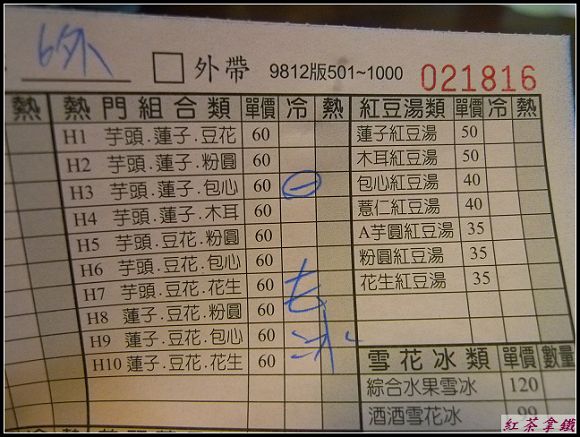 6外 □外帶 9812版501~1000 021816
熱 熱門組合類 單價 冷 熱 紅豆湯類 單價 冷 熱
H1 芋頭.蓮子.豆花 60 蓮子紅豆湯 50
H2 芋頭.蓮子.粉圓 60 木耳紅豆湯 50
H3 芋頭.蓮子.包心 60 一 包心紅豆湯 40
H4 芋頭.蓮子.木耳 60 薏仁紅豆湯 40
H5 芋頭.豆花.粉圓 60 A芋圓紅豆湯 35
H6 芋頭.豆花.包心 60 粉圓紅豆湯 35
H7 芋頭.豆花.花生 60 花生紅豆湯 35
H8 蓮子.豆花.粉圓 60 去
H9 蓮子.豆花.包心 60 冰
H10 蓮子.豆花.花生 60
雪花冰類 單價 數量
綜合水果雪冰 120
酒酒雪花冰 99
紅茶拿鐵